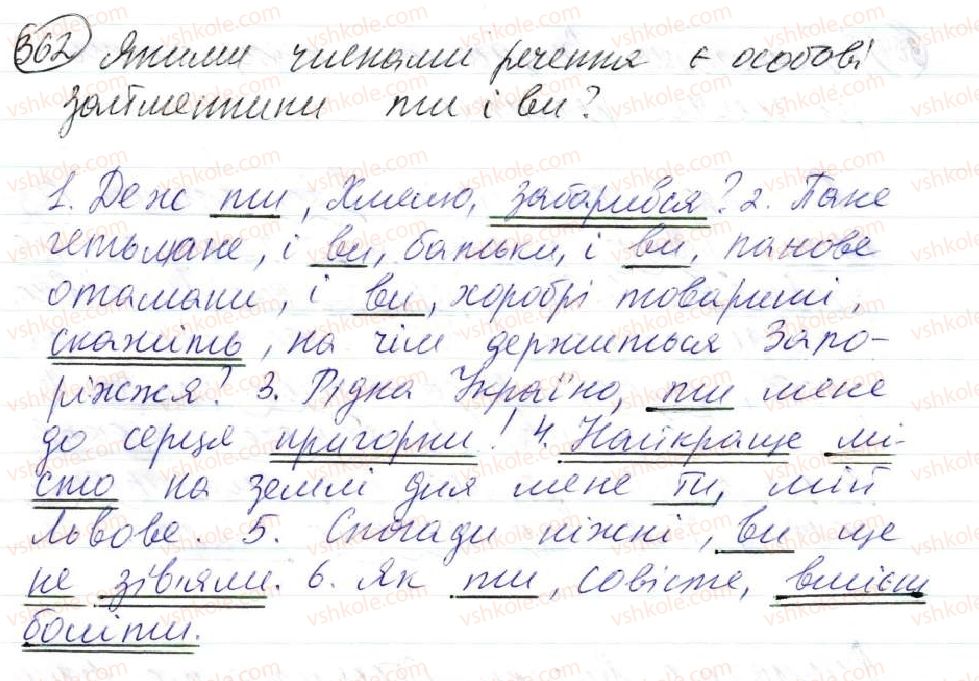 362 Якими членами речення є особові
займенники ти і ви?
1. Де ж ти, Хмелю, забарився? 2. Пане
гетьмане, і ви, батьки, і ви, панове
отамани, і ви, хоробрі товариші,
скажіть, на чім держиться Запо-
ріжжя? 3. Рідна Україно, ти мене
до серця пригорни! 4. Найкраще мі-
сто на землі для мене ти, мій
Львове. 5. Спогади ніжні, ви ще
не зів'яли. 6. Як ти, совісте, вмієш
боліти.